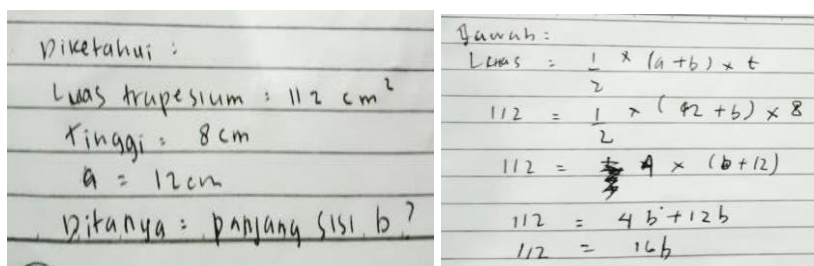 Diketahui :
Luas trapesium : 112 cm²
Tinggi : 8 cm
a = 12 cm
Ditanya : panjang sisi b?
Jawab :
Luas = 1/2 × (a + b) × t
112 = 1/2 × (12 + b) × 8
112 = 4 × (b + 12)
112 = 4b + 12b
112 = 16b